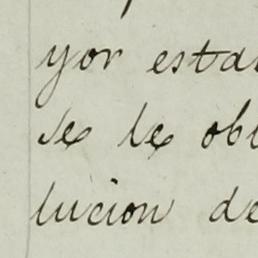 yor esta
se le ob
lucion de